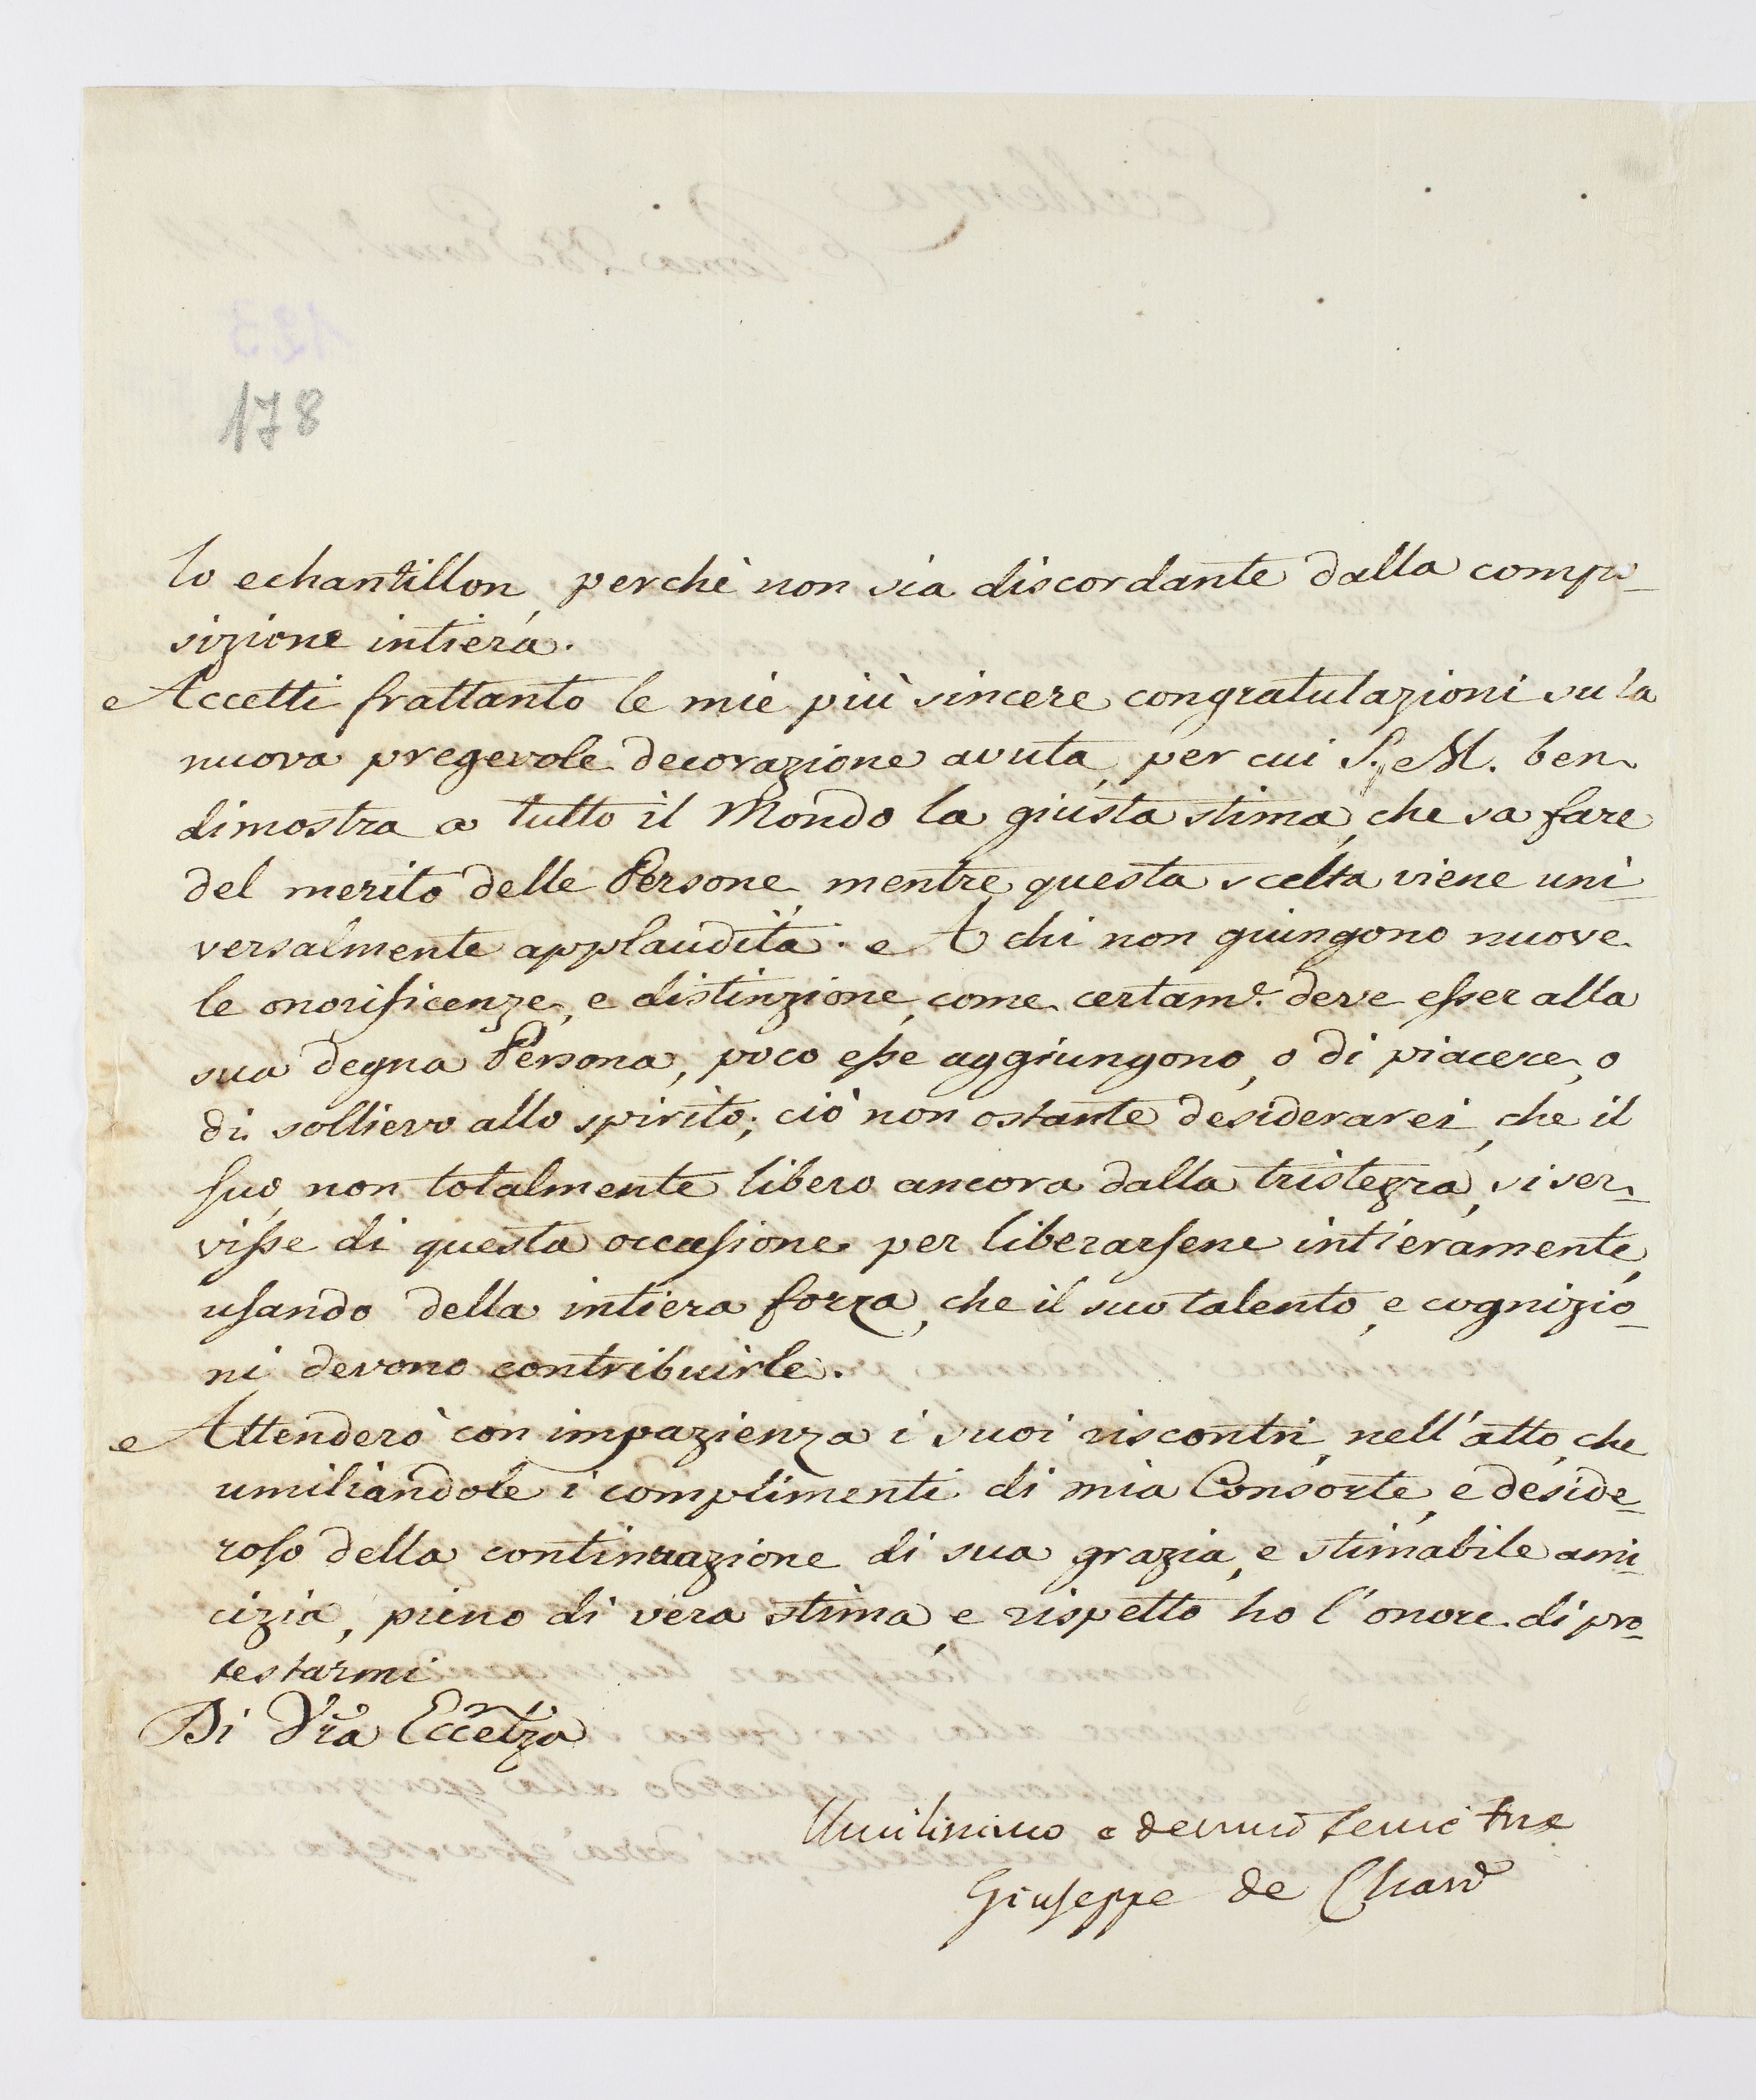 178
lo echantillon, perchè non sia discordante dalla compo-
sizione intiera.
Accetti frattanto le mie più sincere congratulazioni su la
nuova pregevole decorazione avuta, per cui S. M. ben
dimostra a tutto il Mondo la giusta stima, che sa fare
del merito delle Persone, mentre questa scelta viene uni-
versalmente applaudita. A chi non giungono nuove
le onorificenze, e distinzione, come certam.e deve esser alla
sua degna Persona, poco esse aggiungono, o di piacere, o
di sollievo allo spirito; ciò non ostante desiderarei, che il
suo, non totalmente libero ancora dalla tristezza, si ser-
visse di questa occasione per liberarsene intieramente,
usando della intiera forza, che il suo talento, e cognizio-
ni devono contribuirle.
Attenderò con impazienza i suoi riscontri, nell'atto, che
umiliandole i complimenti di mia Consorte, e deside-
roso della continuazione di sua grazia, e stimabile ami-
cizia, pieno di vera stima, e rispetto ho l'onore di pro-
testarmi
Di Vra Eccelza
Giuseppe de